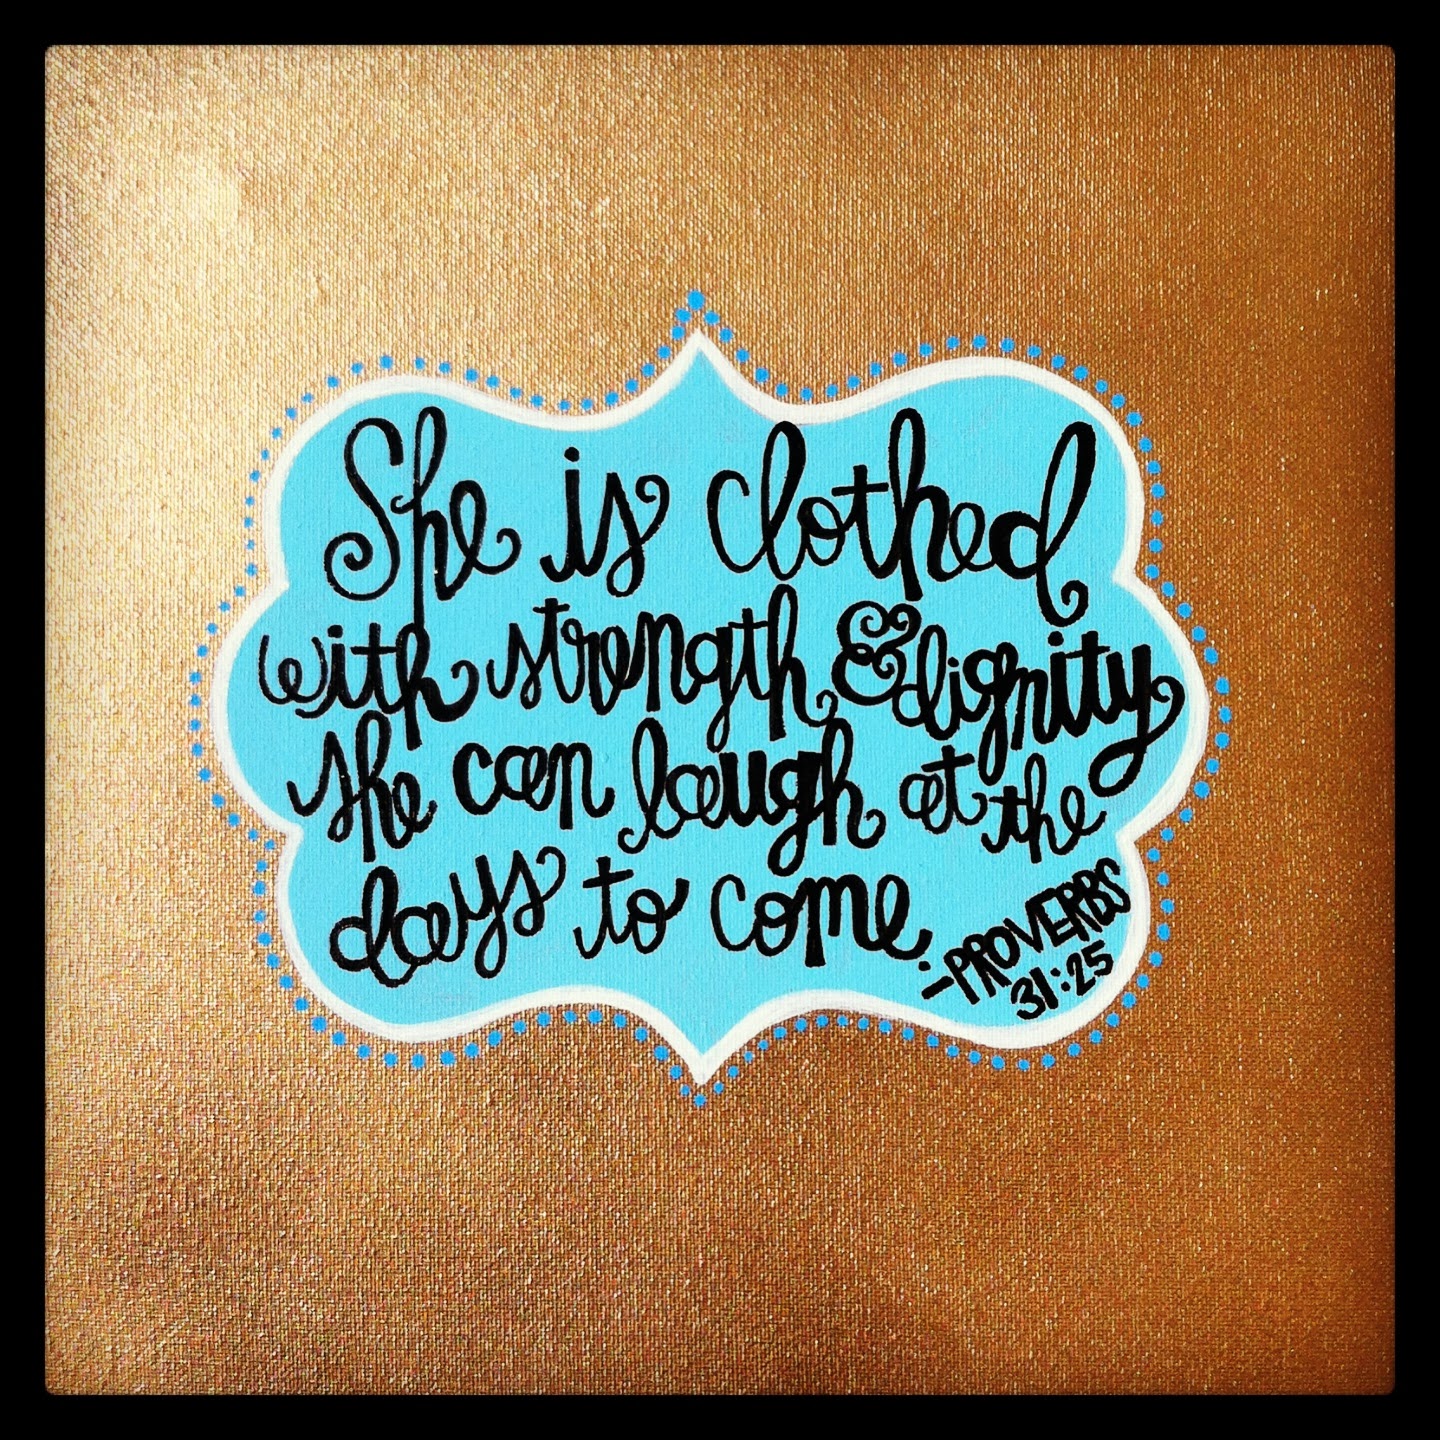 She is clothed
with strength & dignity
she can laugh at the
days to come
-PROVERBS
31:25